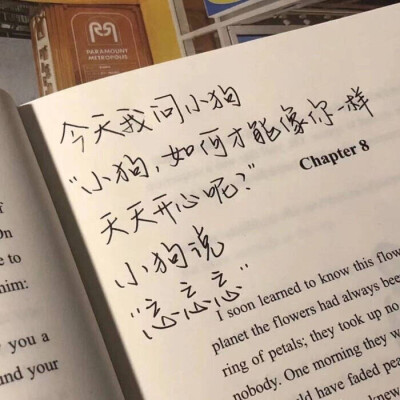 PARAMOUNT
METROPOLIS
今天我问小狗
“小狗，如何才能像你一样
天天开心呢？”
小狗说
“忘忘忘”
On
e to
him:
y you a
nd your
Chapter 8
I soon learned to know this flow
planet the flowers had always bee
ring of petals; they took up no
nobody. One morning they w
uld have faded
knew